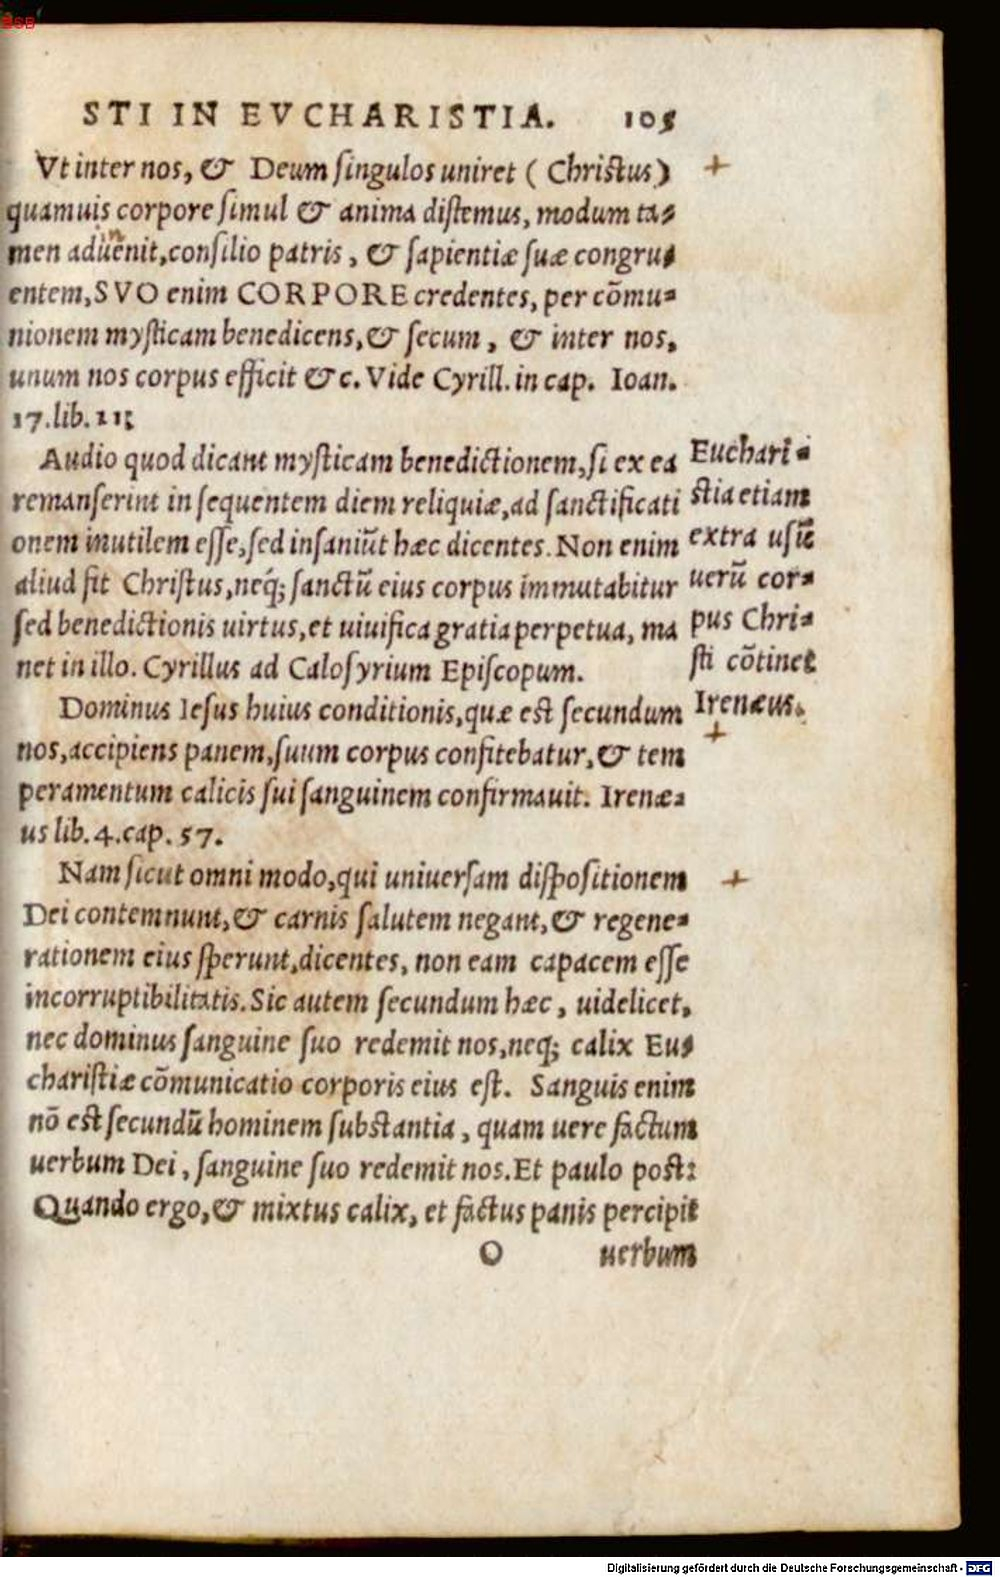 STI IN EVCHARISTIA. 105
Vt inter nos, & Deum singulos uniret ( Christus)
quamuis corpore simul & anima distemus, modum ta-
men aduenit, consilio patris, & sapientiæ suæ congru-
entem, SVO enim CORPORE credentes, per cõmu-
nionem mysticam benedicens, & secum, & inter nos,
unum nos corpus efficit &c. Vide Cyrill. in cap. Ioan.
17. lib. 11;
Audio quod dicant mysticam benedictionem, si ex ea
remanserint in sequentem diem reliquiæ, ad sanctificati
onem inutilem esse, sed insaniũt hæc dicentes. Non enim
aliud fit Christus, neq; sanctũ eius corpus immutabitur
sed benedictionis uirtus, et uiuifica gratia perpetua, ma
net in illo. Cyrillus ad Calosyrium Episcopum.
Euchari-
stia etiam
extra usũ
uerũ cor-
pus Chri-
sti cõtinet
Irenæus.
Dominus Iesus huius conditionis, quæ est secundum
nos, accipiens panem, suum corpus confitebatur, & tem
peramentum calicis sui sanguinem confirmauit. Irenæ-
us lib. 4. cap. 57.
Nam sicut omni modo, qui uniuersam dispositionem
Dei contemnunt, & carnis salutem negant, & regene-
rationem eius sperunt, dicentes, non eam capacem esse
incorruptibilitatis. Sic autem secundum hæc, uidelicet,
nec dominus sanguine suo redemit nos, neq; calix Eu-
charistiæ cõmunicatio corporis eius est. Sanguis enim
nõ est secundũ hominem substantia, quam uere factum
uerbum Dei, sanguine suo redemit nos. Et paulo post:
Quando ergo, & mixtus calix, et factus panis percipit
O uerbum
BSB
Digitalisierung gefördert durch die Deutsche Forschungsgemeinschaft - DFG